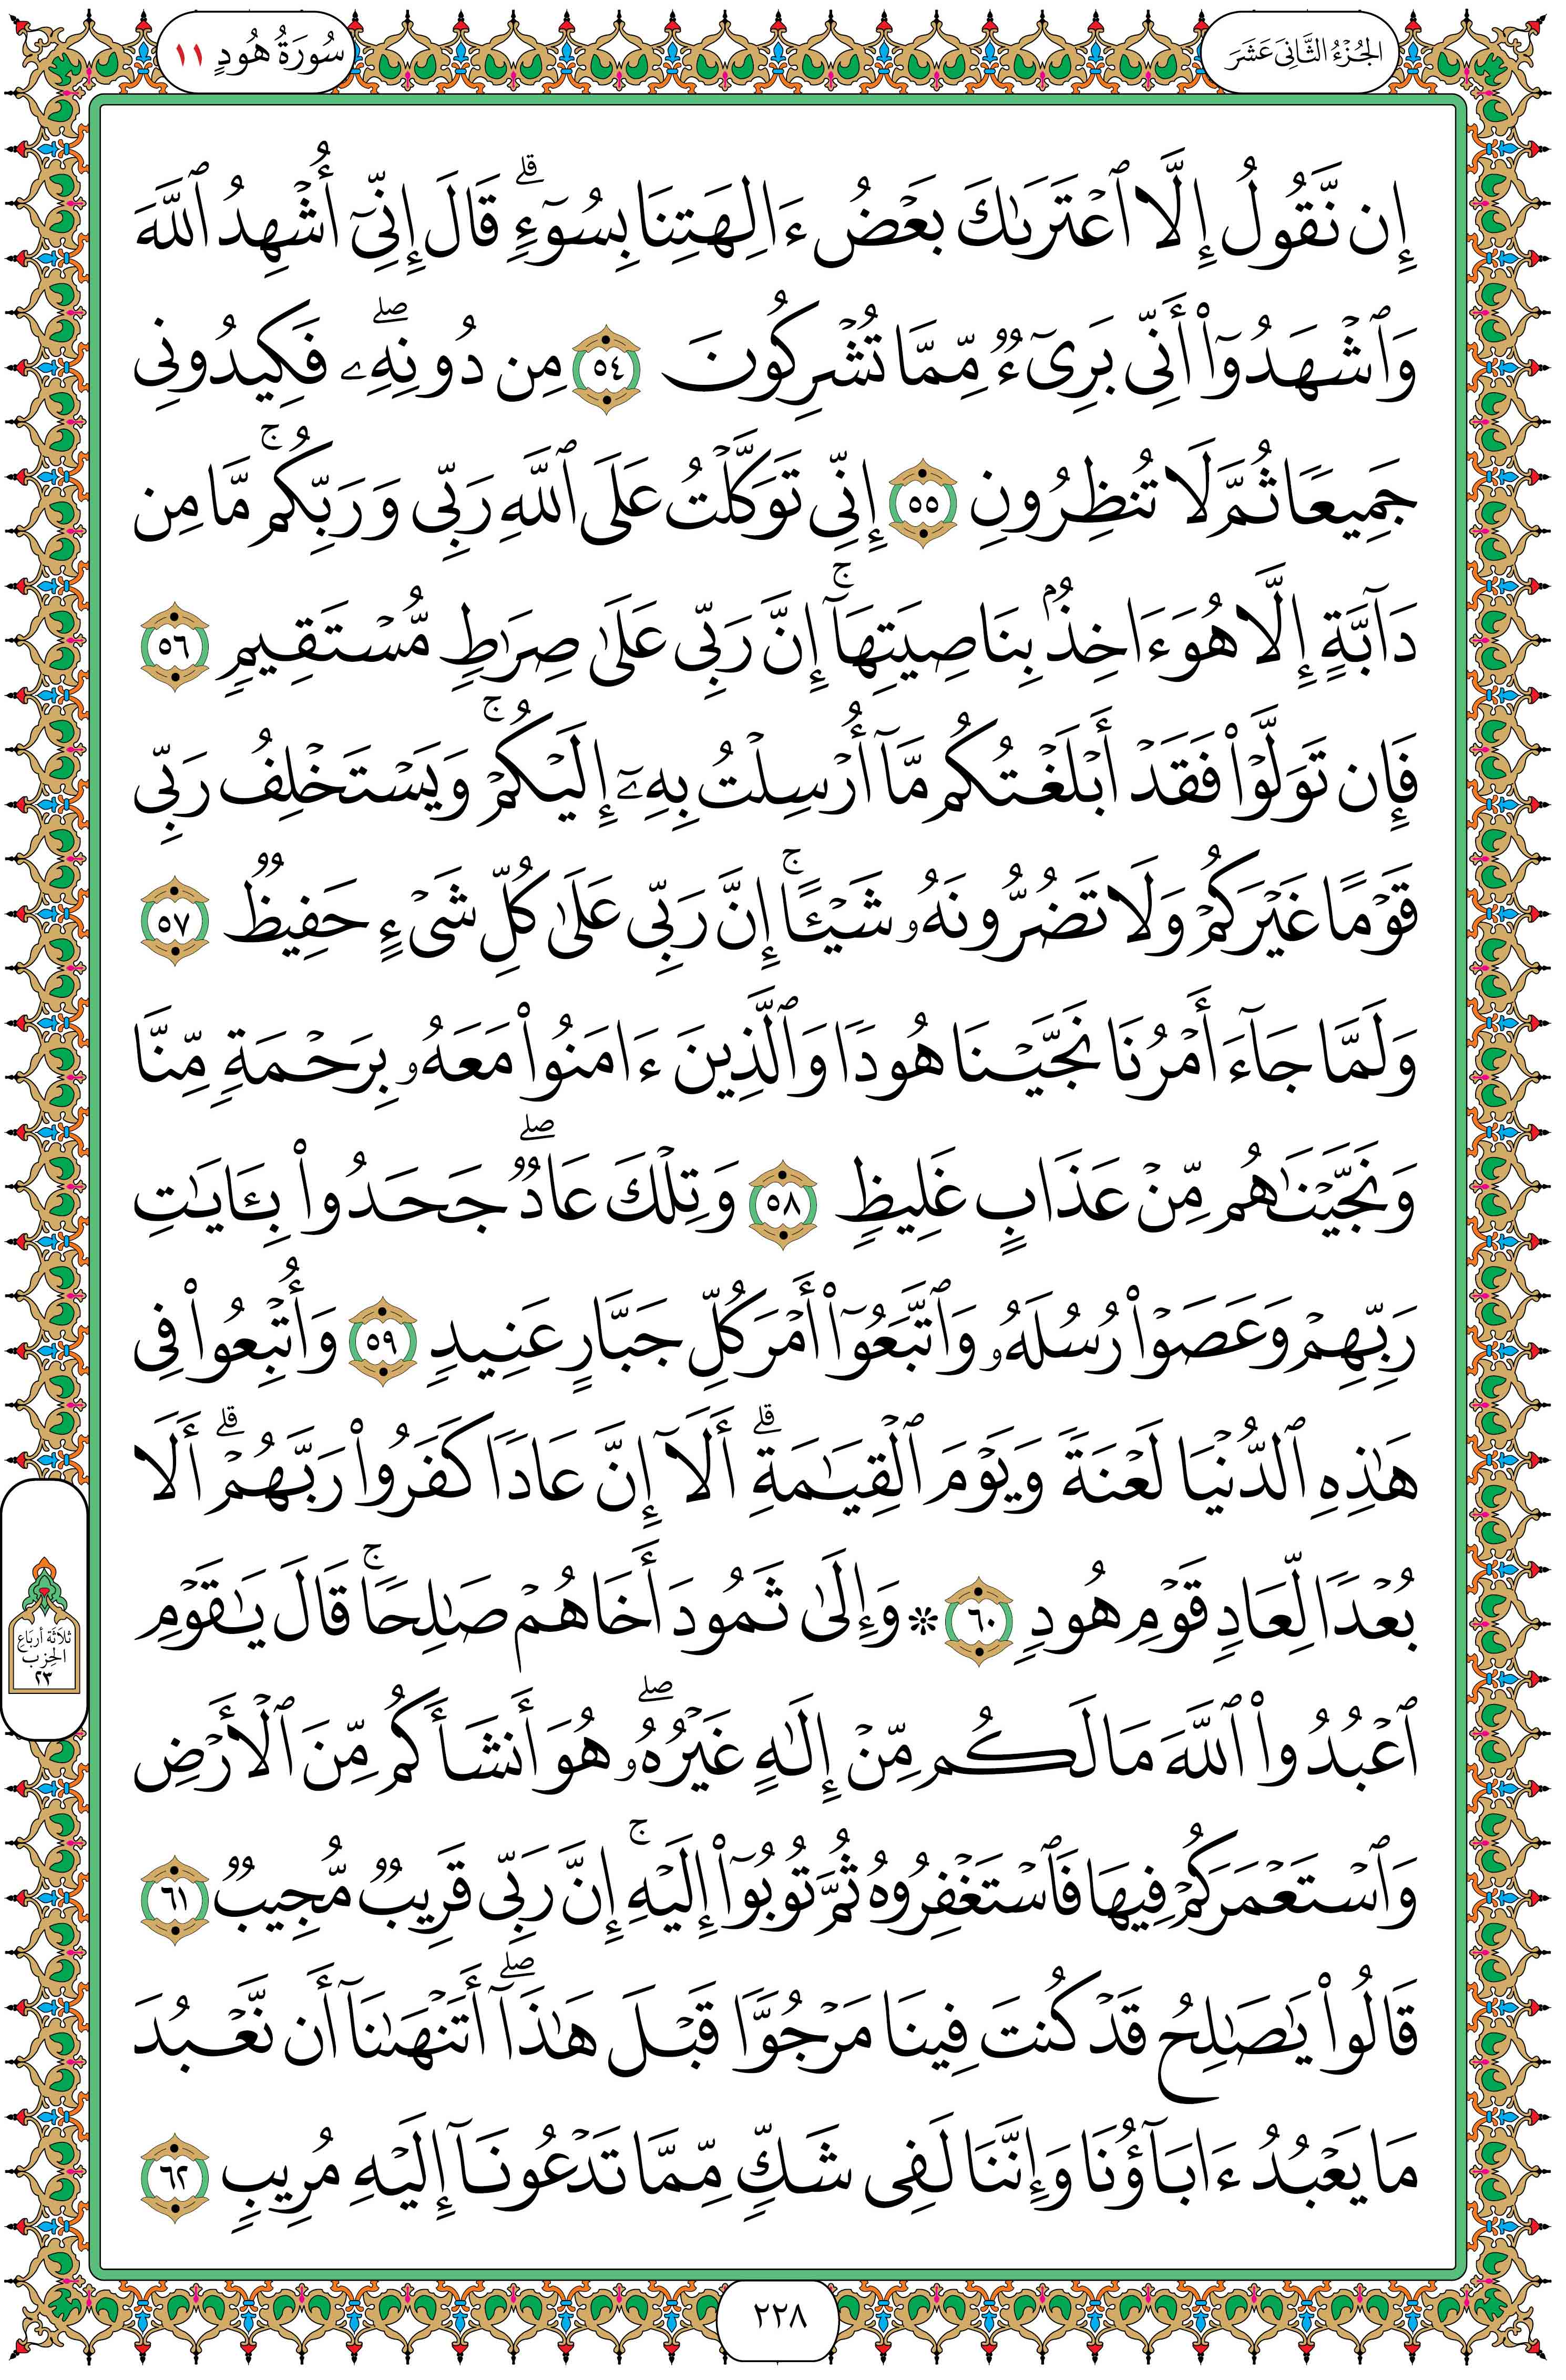 الجُزْءُ الثَّانِىَ عَشَرَ
سُورَةُ هُودٍ ١١
إِن نَّقُولُ إِلَّا ٱعْتَرَىٰكَ بَعْضُ ءَالِهَتِنَا بِسُوٓءٍۗ قَالَ إِنِّىٓ أُشْهِدُ ٱللَّهَ
وَٱشْهَدُوٓا۟ أَنِّى بَرِىٓءٌ مِّمَّا تُشْرِكُونَ ٥٤ مِن دُونِهِۦۖ فَكِيدُونِى
جَمِيعًا ثُمَّ لَا تُنظِرُونِ ٥٥ إِنِّى تَوَكَّلْتُ عَلَى ٱللَّهِ رَبِّى وَرَبِّكُمۚ مَّا مِن
دَآبَّةٍ إِلَّا هُوَ ءَاخِذٌۢ بِنَاصِيَتِهَآۚ إِنَّ رَبِّى عَلَىٰ صِرَٰطٍ مُّسْتَقِيمٍ ٥٦
فَإِن تَوَلَّوْا۟ فَقَدْ أَبْلَغْتُكُم مَّآ أُرْسِلْتُ بِهِۦٓ إِلَيْكُمْۚ وَيَسْتَخْلِفُ رَبِّى
قَوْمًا غَيْرَكُمْ وَلَا تَضُرُّونَهُۥ شَيْـًٔاۚ إِنَّ رَبِّى عَلَىٰ كُلِّ شَىْءٍ حَفِيظٌ ٥٧
وَلَمَّا جَآءَ أَمْرُنَا نَجَّيْنَا هُودًا وَٱلَّذِينَ ءَامَنُوا۟ مَعَهُۥ بِرَحْمَةٍ مِّنَّا
وَنَجَّيْنَٰهُم مِّنْ عَذَابٍ غَلِيظٍ ٥٨ وَتِلْكَ عَادٌۖ جَحَدُوا۟ بِـَٔايَٰتِ
رَبِّهِمْ وَعَصَوْا۟ رُسُلَهُۥ وَٱتَّبَعُوٓا۟ أَمْرَ كُلِّ جَبَّارٍ عَنِيدٍ ٥٩ وَأُتْبِعُوا۟ فِى
هَٰذِهِ ٱلدُّنْيَا لَعْنَةً وَيَوْمَ ٱلْقِيَٰمَةِۗ أَلَآ إِنَّ عَادًا كَفَرُوا۟ رَبَّهُمْۗ أَلَا
بُعْدًا لِّعَادٍ قَوْمِ هُودٍ ٦٠ * وَإِلَىٰ ثَمُودَ أَخَاهُمْ صَٰلِحًاۚ قَالَ يَٰقَوْمِ
ٱعْبُدُوا۟ ٱللَّهَ مَا لَكُم مِّنْ إِلَٰهٍ غَيْرُهُۥۖ هُوَ أَنشَأَكُم مِّنَ ٱلْأَرْضِ
وَٱسْتَعْمَرَكُمْ فِيهَا فَٱسْتَغْفِرُوهُ ثُمَّ تُوبُوٓا۟ إِلَيْهِۚ إِنَّ رَبِّى قَرِيبٌ مُّجِيبٌ ٦١
قَالُوا۟ يَٰصَٰلِحُ قَدْ كُنتَ فِينَا مَرْجُوًّا قَبْلَ هَٰذَآۖ أَتَنْهَىٰنَآ أَن نَّعْبُدَ
مَا يَعْبُدُ ءَابَآؤُنَا وَإِنَّنَا لَفِى شَكٍّ مِّمَّا تَدْعُونَآ إِلَيْهِ مُرِيبٍ ٦٢
ثلاثَة أرباع
الحِزب
٢٣
٢٢٨